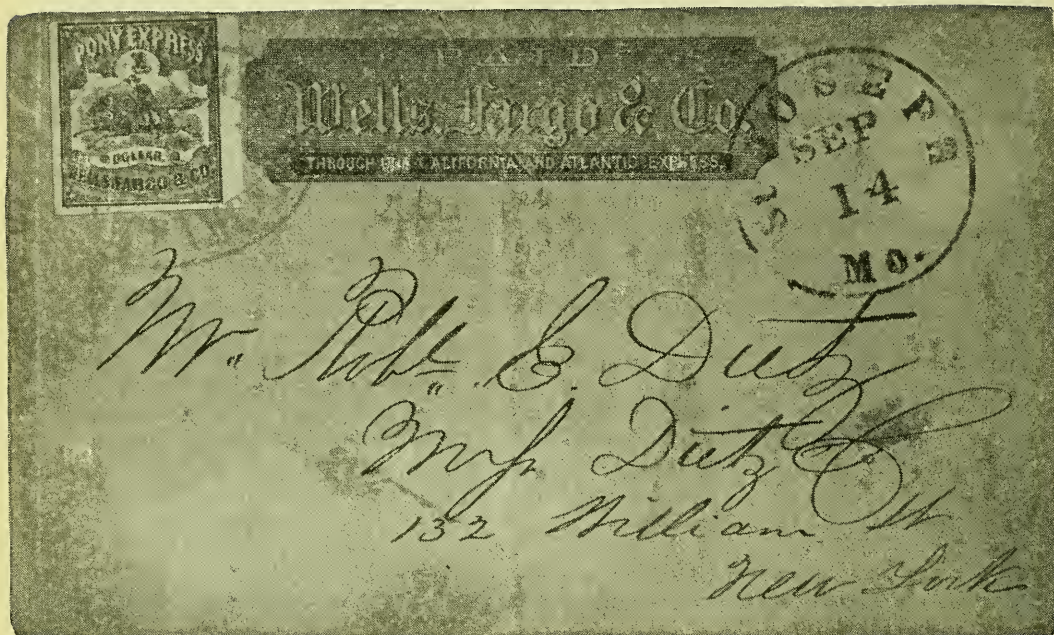 PONY EXPRESS
DOLLAR
WELLS FARGO & CO.
PAID
Wells, Fargo & Co.
THROUGH OUR CALIFORNIA AND ATLANTIC EXPRESS.
ST JOSEPH
SEP
14
Mo.
Mr. Robt. E. Dietz
Dietz & Co
132 William St
New York